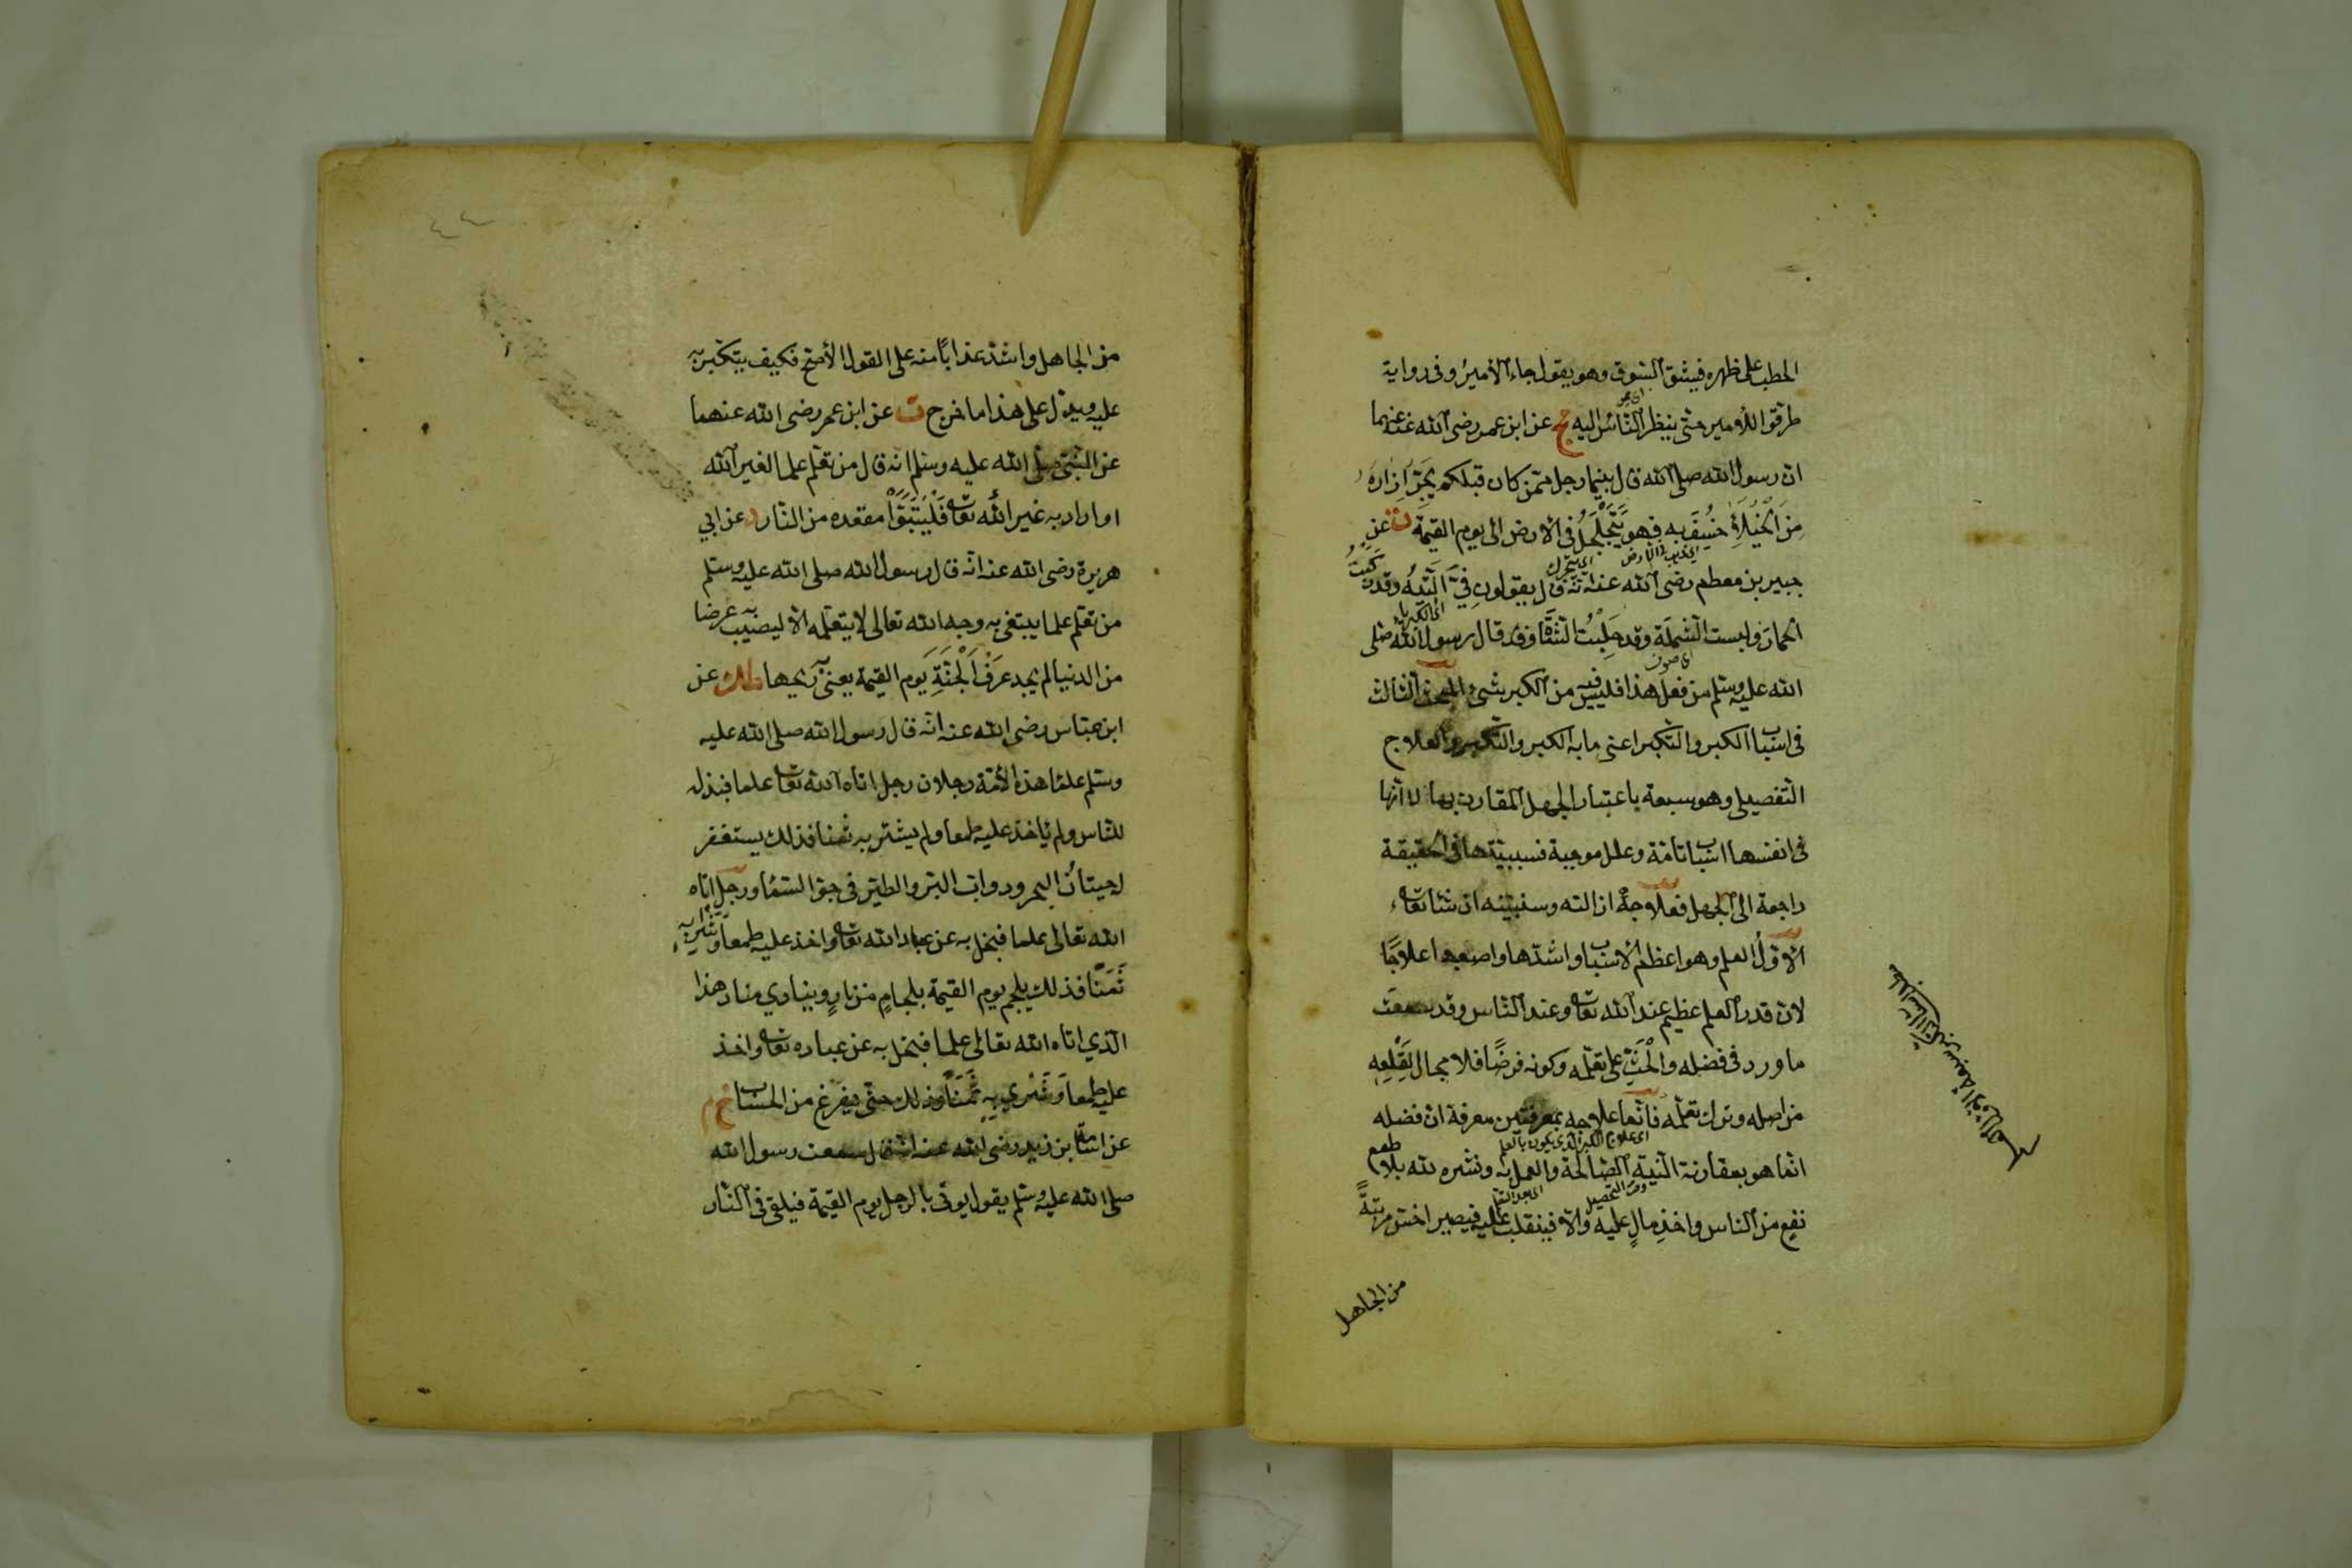 الحطب على ظهره فيشق السوق وهو يقول جاء الأمير وفى رواية
طرقوا للأمير حتى ينظر الناس اليه خ م عن ابن عمر رضى الله عنهما
ان رسول الله صلى الله قال بينما رجل ممن كان قبلكم يَجُرُّ اِزَارَهُ
مِنَ الْخُيَلَاءِ خُسِفَ به فهو يَتَجَلْجَلُ فى الأرض الى يوم القيمة ت عن
جبير بن مطعم رضى الله عنه انه قال يقولون فِيَّ اَلتِّيهُ وقد رَكِبْتُ
الحمار ولبست الشملة وقد حَلِبْتُ الشاة وقد قال رسول الله صلى
الله عليه وسلم من فعل هذا فليس فيه من الكبر شئ المبحث الثالث
فى اسباب الكبر والتكبر اعنى ما به الكبر والتكبر والعلاج
التفصيلى وهو سبعة باعتبار الجهل المقارن بها لا انها
فى انفسها اسباب تامة وعلل موجبة فسببيتها فى الحقيقة
راجعة الى الجهل فعلاجه ازالته وسنبينه ان شاء تعالى
الأول العلم وهو اعظم الأسباب واشدها واصعبها علاجًا
لان قدر العلم عظيم عند الله تعالى وعند الناس وقد سمعت
ما ورد فى فضله والْحَثِّ على تعلمه وكونه فرضًا فلا مجال لِقَلْعِهِ
من اصله وترك تعلمه فانما علاجه بمعرفتين معرفة ان فضله
اى علاج الكبر الذى يكون بالعلم
انما هو بمقارنة النية الصالحة والعمل به ونشره لله بلا طمع
نفعٍ من الناس واخذِ مالٍ عليه والا فينقلب عليه فيصير اخسّ مرتبةً
من الجاهل
من الجاهل واشد عذابًا منه على القول الأصح فكيف يتكبر به
عليه ويدل على هذا ما خرج ت عن ابن عمر رضى الله عنهما
عن النبى صلى الله عليه وسلم انه قال من تعلم علما لغير الله
او اراد به غير الله تعالى فَلْيَتَبَوَّأْ مقعده من النار د عن ابي
هريرة رضى الله عنه انه قال رسول الله صلى الله عليه وسلم
من تعلم علما يبتغى به وجه الله تعالى لا يتعلمه الا ليصيب به عرضا
من الدنيا لم يجد عَرْفَ اَلْجَنَّةِ يوم القيمة يعنى ريحها طك عن
ابن عباس رضى الله عنه انه قال رسول الله صلى الله عليه
وسلم علماء هذه الأمة رجلان رجل اتاه الله تعالى علما فبذله
للناس ولم يأخذ عليه طمعا ولم يشتر به ثمنا فذلك يستغفر
له حيتان البحر ودواب البر والطير فى جو السماء ورجل اتاه
الله تعالى علما فبخل به عن عباد الله تعالى واخذ عليه طمعا وَشَرَى به
ثَمَنًا فذلك يلجم يوم القيمة بلجامٍ من نارٍ وينادي مناد هذا
الذي اتاه الله تعالى علما فبخل به عن عباده تعالى واخذ
عليه طمعا وَشَرَى بِهِ ثَمَنًا وذلك حتى يفرغ من الحساب خ م
عن اسامة بن زيد رضى الله عنه انه قال سمعت رسول الله
صلى الله عليه وسلم يقول يوتى بالرجل يوم القيمة فيلقى فى النار